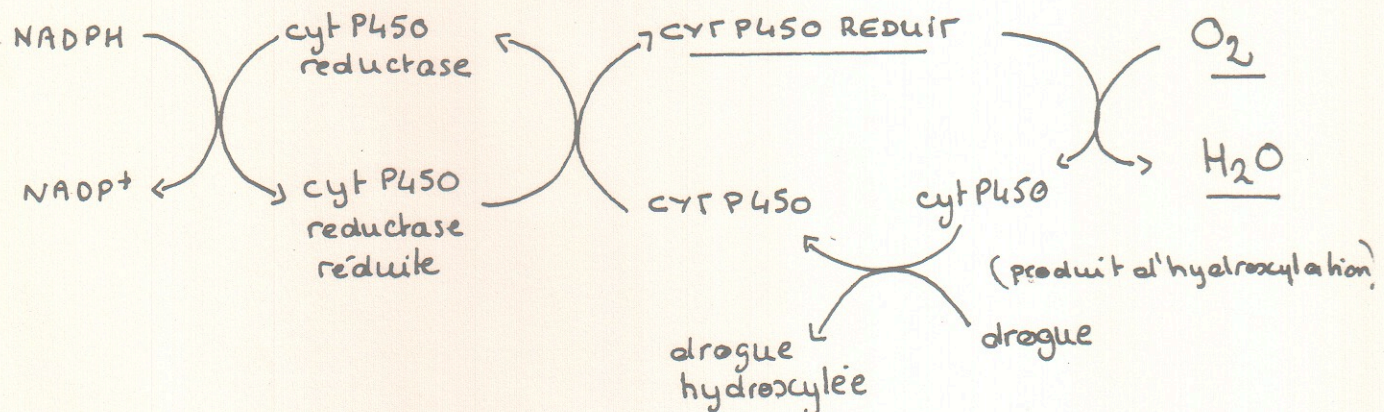 NADPH
cyt P450
reductase
CYT P450 REDUIT
O2
NADP+
cyt P450
reductase
réduite
CYT P450
cyt P450
H2O
(produit d'hydroxylation)
drogue
hydroxylée
drogue